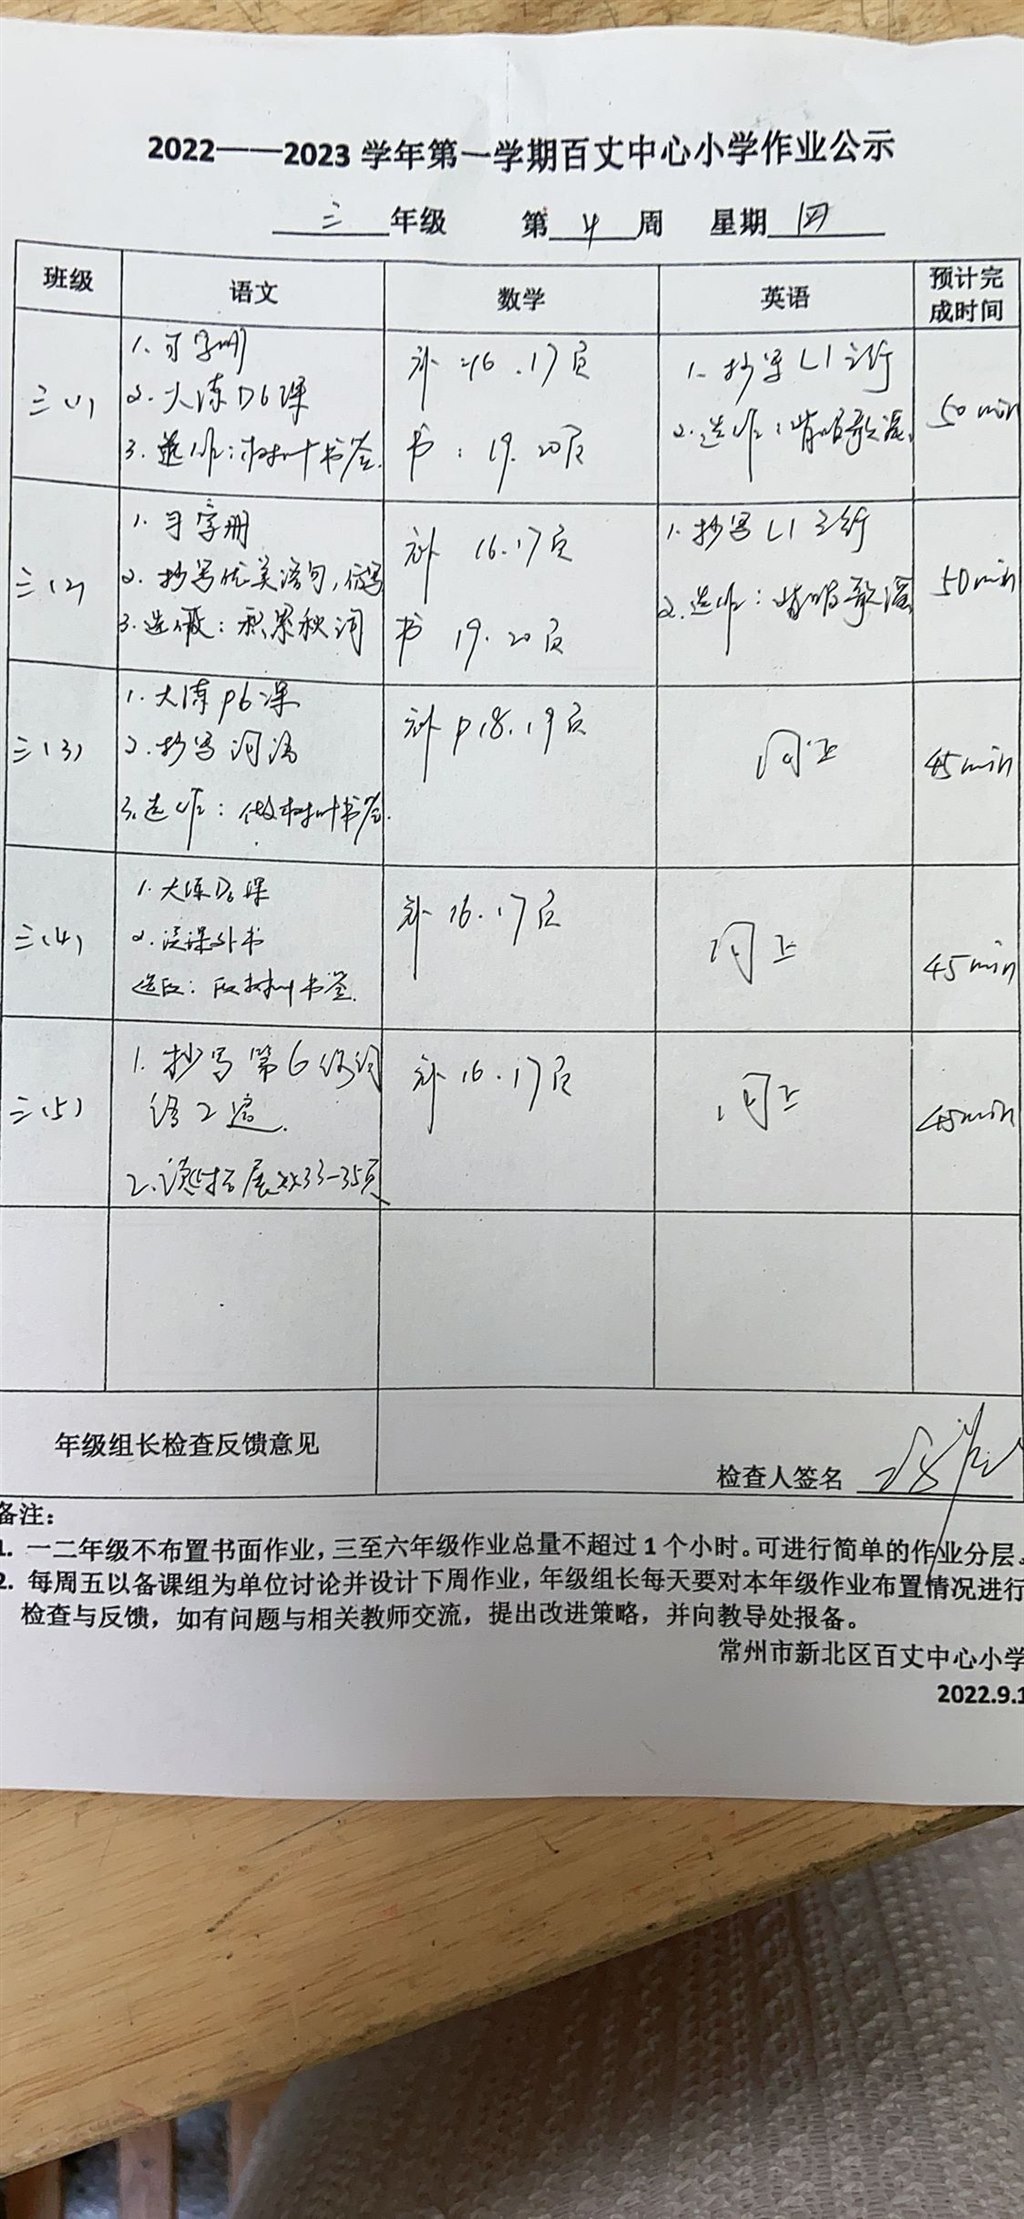 2022——2023 学年第一学期百丈中心小学作业公示
三 年级 第 4 周 星期 四
班级 语文 数学 英语 预计完成时间
三(1)
1. 习字册
2. 大练P6课
3. 选作:树叶书签.
补 16.17页
书:19.20页
1. 抄写L1 三行
2. 选作:背唱歌谣
50min
三(2)
1. 习字册
2. 抄写优美语句,仿写
3. 选做:积累秋词
补 16.17页
书 19.20页
1. 抄写L1 三行
2. 选作:背唱歌谣
50min
三(3)
1. 大练P6课
2. 抄写词语
3. 选作:做树叶书签.
补P18.19页
同上
45min
三(4)
1. 大练P6课
2. 读课外书
选做:做树叶书签.
补16.17页
同上
45min
三(5)
1. 抄写第6课词
语2遍.
2. 读拓展 33-35页
补16.17页
同上
45min
年级组长检查反馈意见
检查人签名
备注:
1. 一二年级不布置书面作业,三至六年级作业总量不超过1个小时。可进行简单的作业分层。
2. 每周五以备课组为单位讨论并设计下周作业,年级组长每天要对本年级作业布置情况进行
检查与反馈,如有问题与相关教师交流,提出改进策略,并向教导处报备。
常州市新北区百丈中心小学
2022.9.1